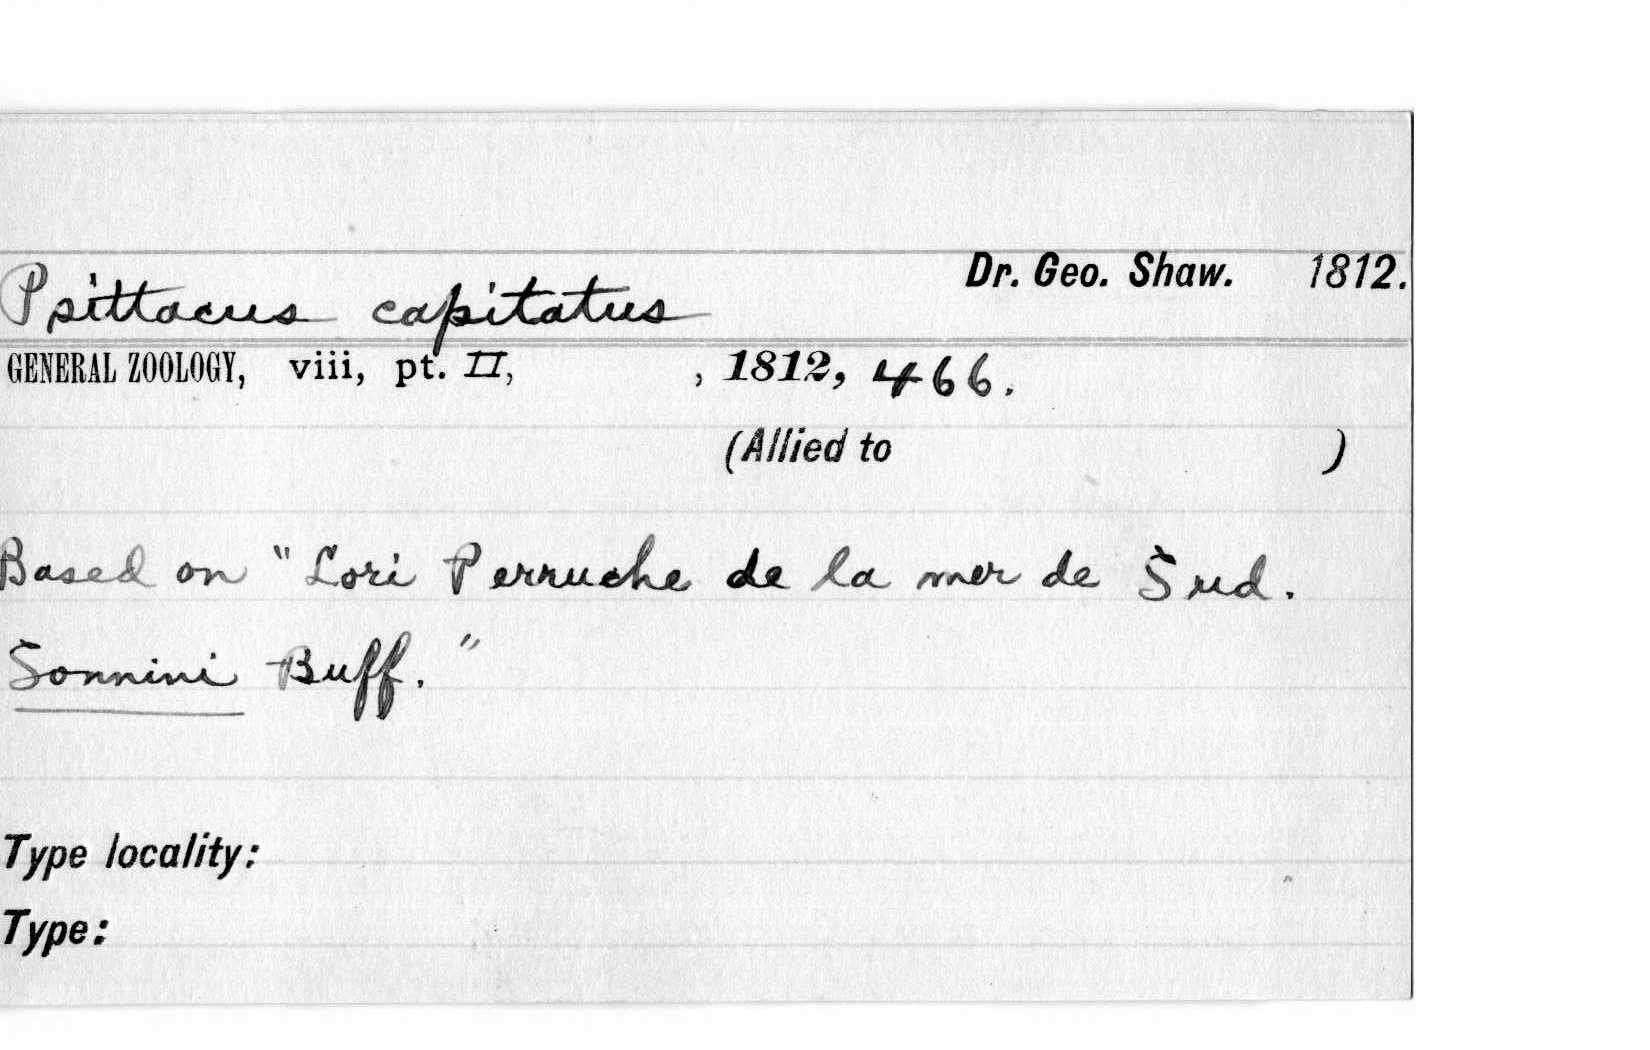 Dr. Geo. Shaw. 1812.
Psittacus capitatus
GENERAL ZOOLOGY, viii, pt. II, , 1812, 466.
(Allied to )
Based on "Lori Perruche de la mer de Sud.
Sonnini Buff."
Type locality:
Type: